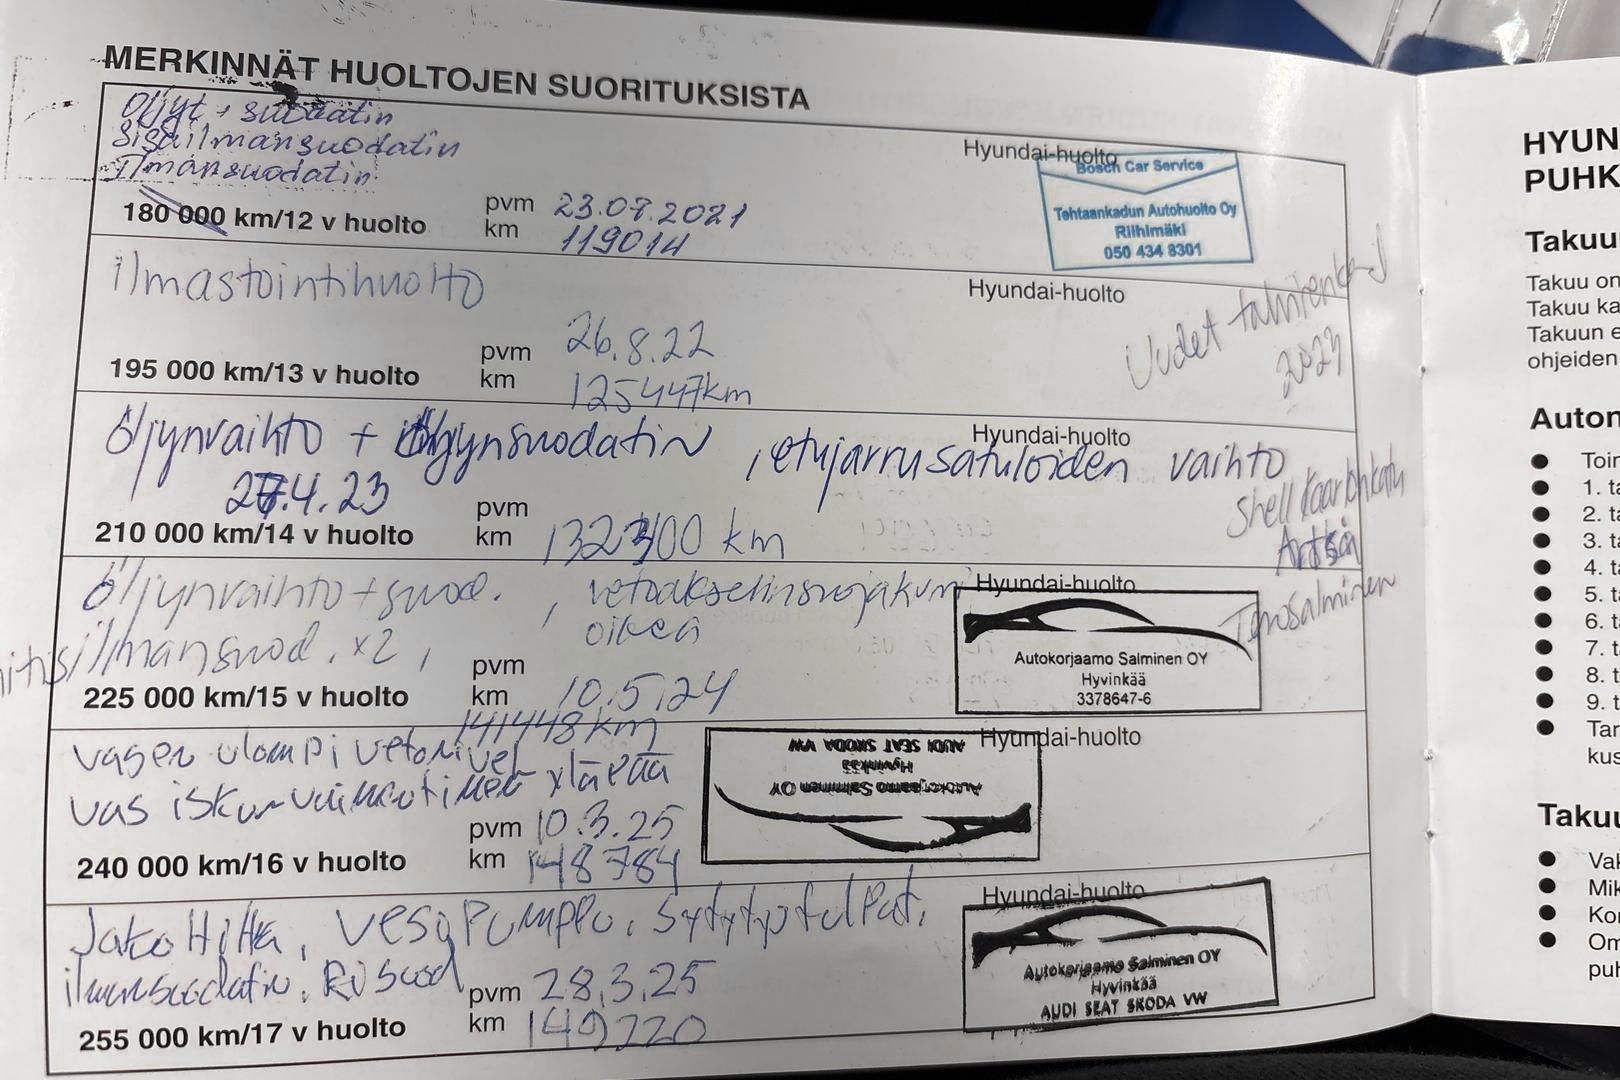 MERKINNÄT HUOLTOJEN SUORITUKSISTA
Öljyt + suodatin
Sisäilmansuodatin
Ilmansuodatin
Hyundai-huolto
Bosch Car Service
Tehtaankadun Autohuolto Oy
Riihimäki
050 434 8301
180 000 km/12 v huolto
pvm 23.07.2021
km 119014
ilmastointihuolto
Hyundai-huolto
Uudet talvirenkaj
2023
195 000 km/13 v huolto
pvm 26.8.22
km 125447km
Hyundai-huolto
öljynvaihto + öljynsuodatin, etujarrusatuloiden vaihto
27.4.23
210 000 km/14 v huolto
pvm
km 132300 km
Shell Kaarlonkatu
Timosalminen
Hyundai-huolto
öljynvaihto + suod. , vetoakselinsuojakumi
oikea
ilmansuod. x2,
225 000 km/15 v huolto
pvm
km 10.5.24
141448km
Autokorjaamo Salminen OY
Hyvinkää
3378647-6
Hyundai-huolto
vasen ulompi vetonivel
vas iskunvaimentimen yläpää
240 000 km/16 v huolto
pvm 10.3.25
km 148784
Autokorjaamo Salminen OY
Hyvinkää
AUDI SEAT SKODA VW
Hyundai-huolto
Jakohihna, vesipumppu, sytytystulpat,
ilmansuodatin, RI suod
255 000 km/17 v huolto
pvm 28.3.25
km 149220
Autokorjaamo Salminen OY
Hyvinkää
AUDI SEAT SKODA VW
HYUN
PUHK
Takuu
Takuu on
Takuu ka
Takuun e
ohjeiden
Auton
Toin
1. ta
2. ta
3. ta
4. ta
5. ta
6. ta
7. t
8. t
9. t
Tar
kus
Takuu
Vak
Mik
Kor
Om
puh